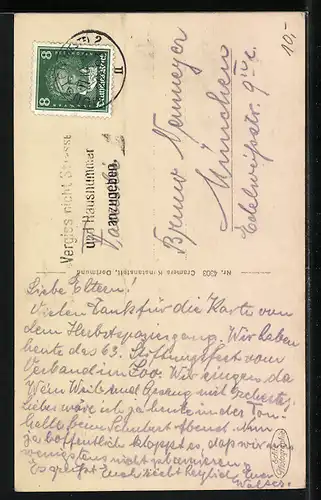 10,-
8 8
Deutsches Reich
Vergiss nicht Strasse
und Hausnummer
anzugeben.
Bruno
München
Edelweißstr. 9 IV r.
Nr. 4203 Cramers Kunstanstalt, Dortmund
Liebe Eltern!
Vielen Dank für die Karte vom
dem Herbstspaziergang. Wir haben
heute das 63. Stiftungsfest vom
Verband im Zoo. Wir singen da
Wein Weib und Gesang mit Orchester.
Lieber wäre ich ja heute in der Ton-
halle beim Schubert Abend. Nun
ja hoffentlich klappt es, daß wir uns
wenigstens nicht blamieren.
Es grüßt Euch recht herzlich Euer
Walter.